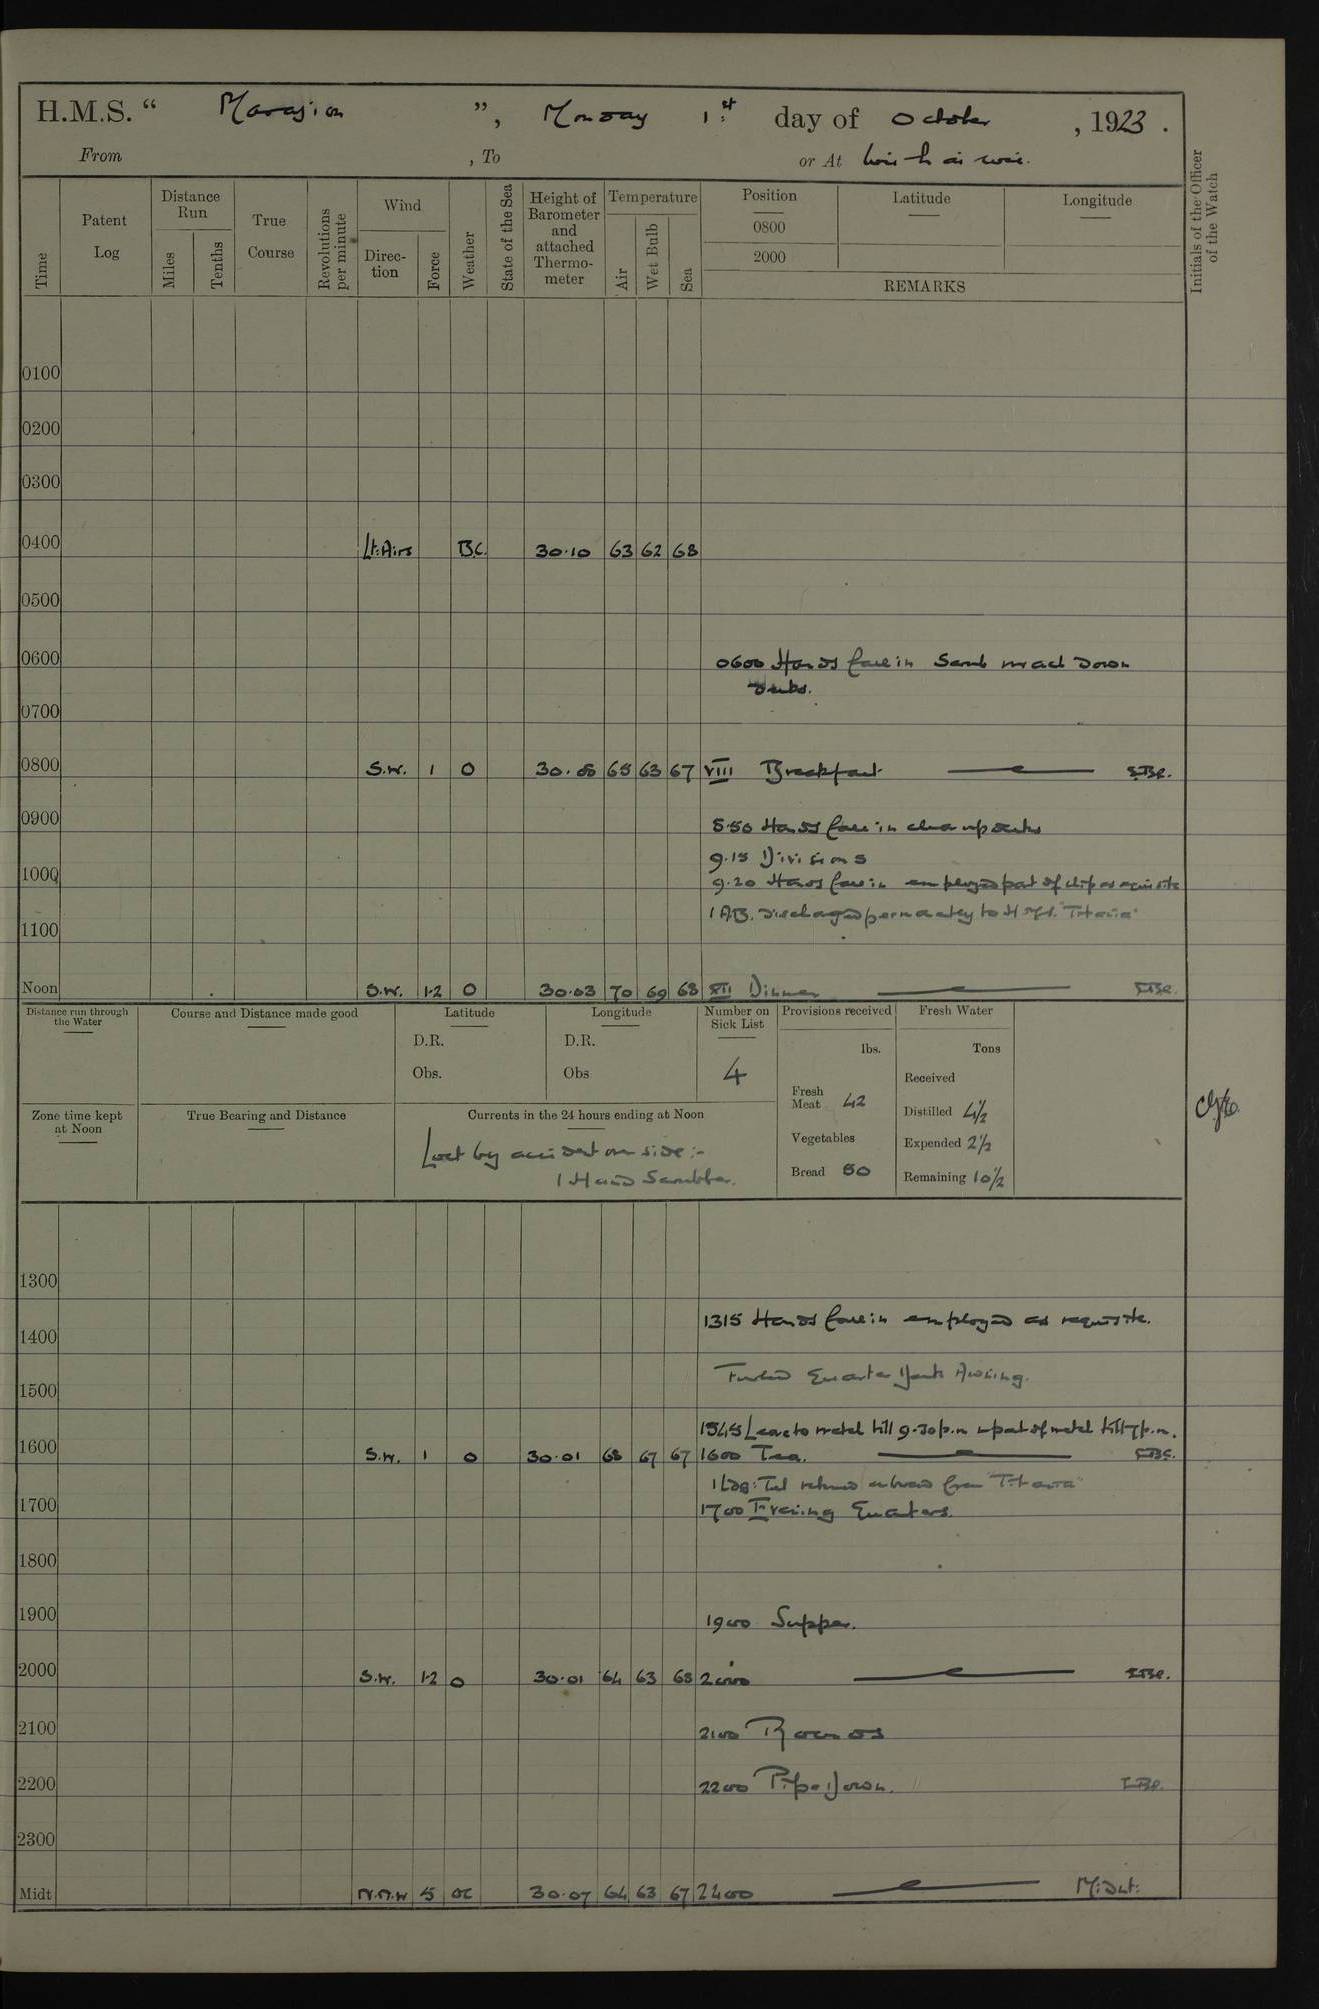 H.M.S. “ Marazion ”, Monday 1st day of October, 1923.
From , To or At Wei-h ai wei.
Time
Patent Log
Distance Run
Miles
Tenths
True Course
Revolutions per minute
Wind
Direction
Force
Weather
State of the Sea
Height of Barometer and attached Thermometer
Temperature
Air
Wet Bulb
Sea
Position
0800
2000
Latitude
Longitude
REMARKS
Initials of the Officer of the Watch
0100
0200
0300
0400 Lt: Airs B.C. 30.10 63 62 68
0500
0600 0600 Hands fall in Scrub down
decks.
0700
0800 S.W. 1 O 30.06 65 63 67 VIII Breakfast
0900 8.50 Hands fall in clear up decks
9.15 Divisions
1000 9.20 Hands fall in employed part of ship as requisite
1 A.B. discharged permanently to H.M.S. "Titania"
1100
Noon S.W. 1-2 O 30.03 70 69 68 XII Dinner
Distance run through the Water
Course and Distance made good
Latitude
D.R.
Obs.
Longitude
D.R.
Obs
Number on Sick List
4
Provisions received
lbs.
Fresh Meat 42
Vegetables
Bread 50
Fresh Water
Tons
Received
Distilled 4½
Expended 2½
Remaining 10½
Zone time kept at Noon
True Bearing and Distance
Currents in the 24 hours ending at Noon
Lost by accident over side :-
1 Hand Scrubber.
1300
1315 Hands fall in employed as requisite.
1400
Furled Quarter Deck Awning.
1500
1545 Leave to watch till 9.30 p.m. & part of watch till 7 p.m.
1600 S.W. 1 O 30.01 68 67 67 1600 Tea.
1 Ldg: Tel returned aboard from "Titania"
1700 1700 Evening Quarters.
1800
1900 1900 Supper.
2000 S.W. 1-2 O 30.01 64 63 68 2000
2100 2100 Rounds
2200 2200 Pipe Down.
2300
Midt N.N.W 5 OC 30.07 64 63 67 2400 Midnt: